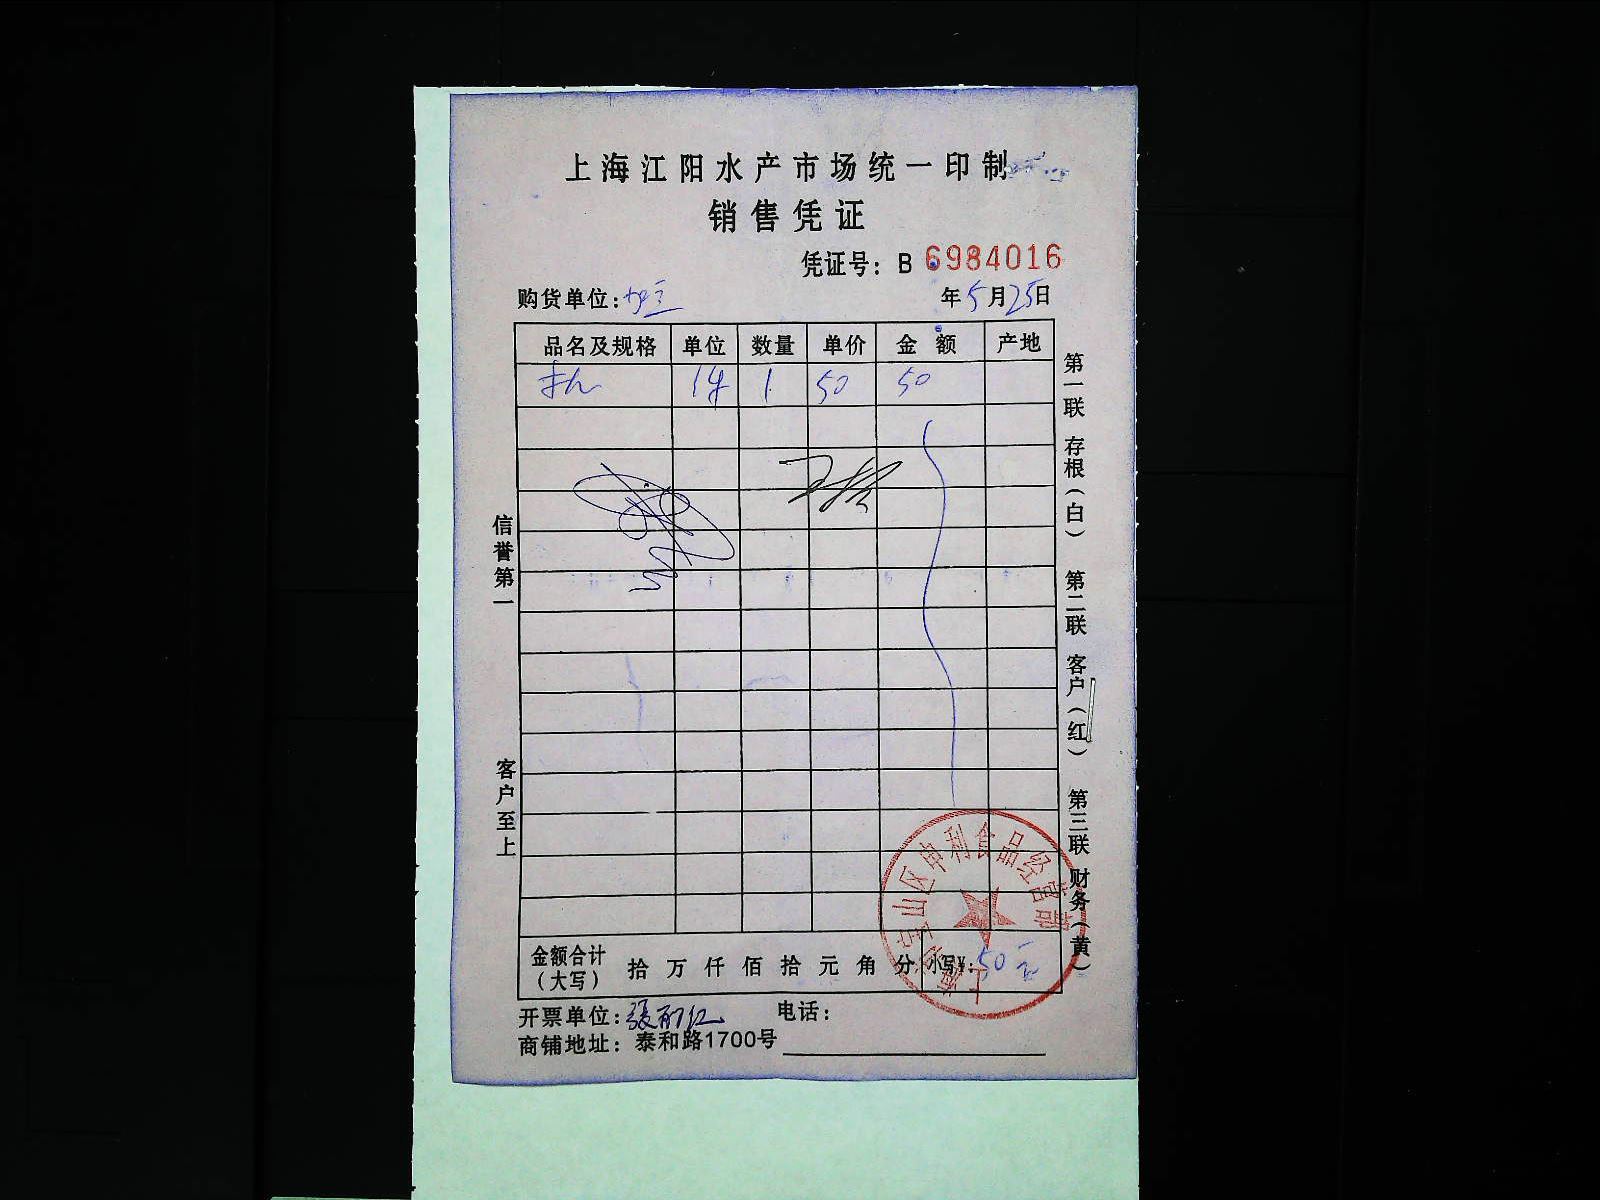 上海江阳水产市场统一印制
销售凭证
凭证号：B 6984016
购货单位：
年5月25日
品名及规格 单位 数量 单价 金额 产地
1件 1 50 50
信誉第一
客户至上
第一联 存根（白） 第二联 客户（红） 第三联 财务（黄）
金额合计（大写） 拾万仟佰拾元角分 小写¥：50元
上海市宝山区申利食品经营部
开票单位：張丽红 电话：
商铺地址：泰和路1700号